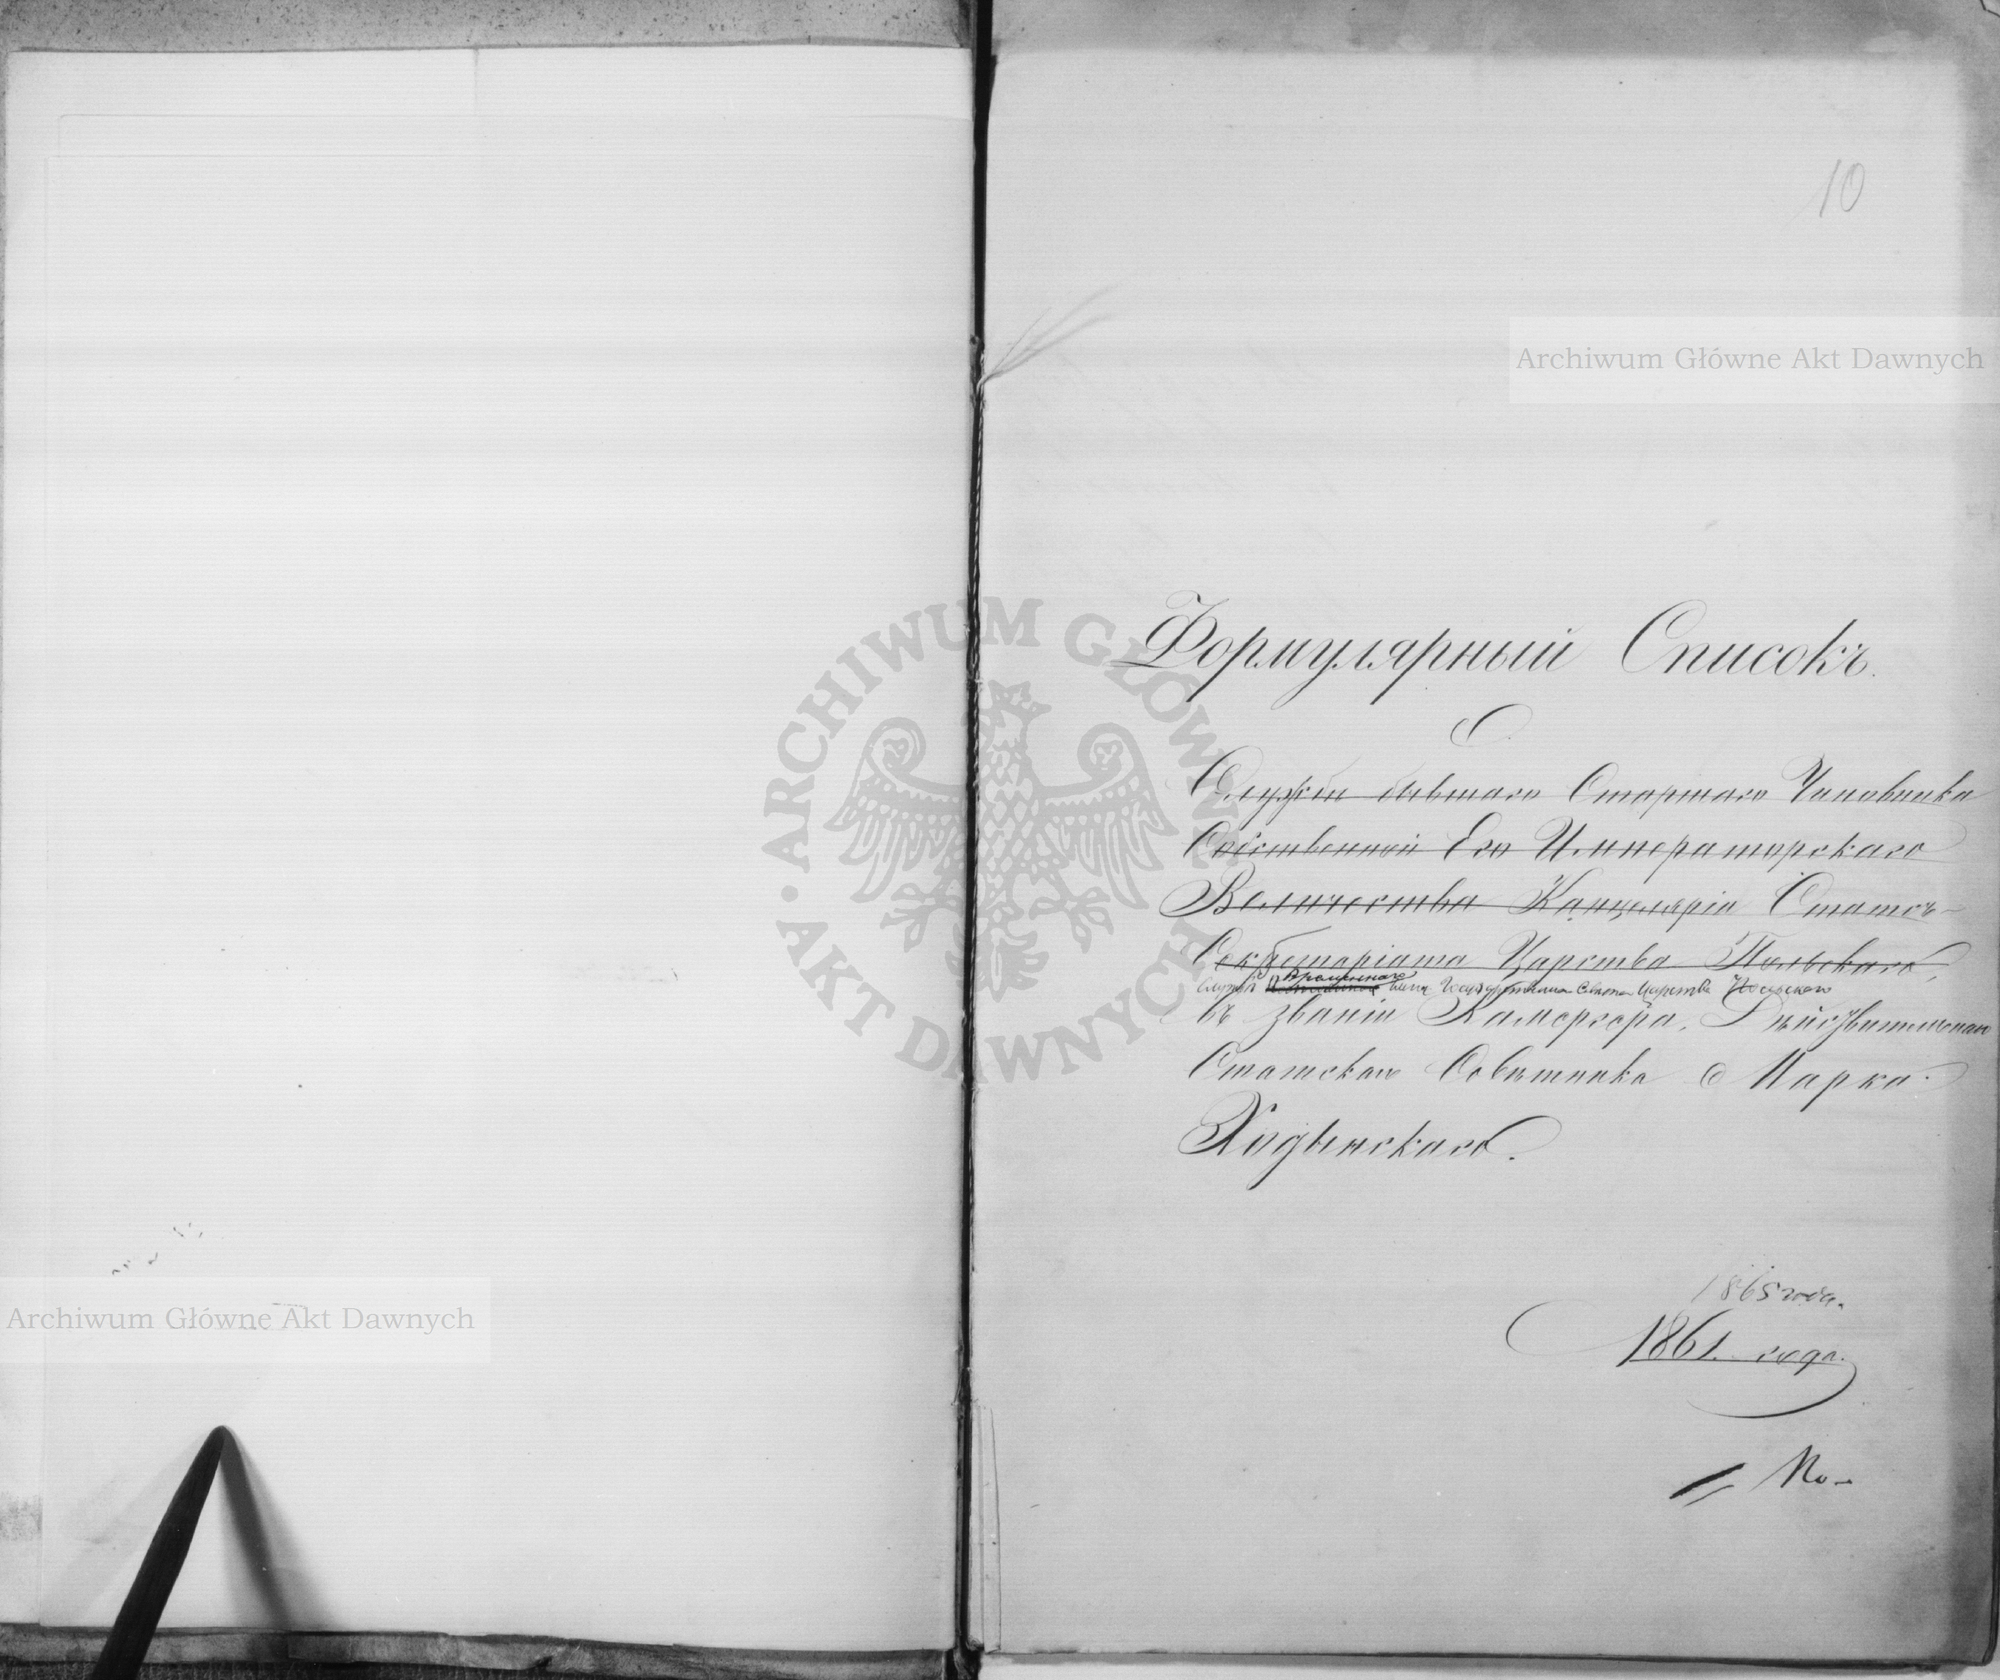 10
Archiwum Główne Akt Dawnych
Формулярный Списокъ
О
Службѣ бывшаго Старшаго Чиновника
Собственной Его Императорскаго
Величества Канцеляріи Статсъ-
Секретаріата Царства Польскаго,
Временнаго
службѣ члена Государственнаго Совѣта Царства Польскаго
въ званіи Камергера, Дѣйствительнаго
Статскаго Совѣтника Марка
Ходынскаго.
1865 года.
1861. года.
ARCHIWUM GŁÓWNE AKT DAWNYCH
Archiwum Główne Akt Dawnych